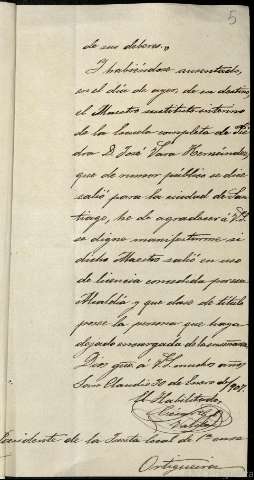 5
de sus deberes.,
Y habiéndose ausentado,
en el día de ayer, de su destino
el Maestro sustituto interino
de la Escuela completa de
dra D. José Vara Hernández,
que de rumor público se dice
salió para la ciudad de San-
tiago, he de agradecer á V.S.
se digne manifestarme si
dicho Maestro salió en uso
de licencia concedida por esa
Alcaldía y que clase de título
posee la persona que haya
dejado encargada de la enseñanza.
Dios gue á V.S. muchos años
San Claudio 30 de Enero de 1907.
El Habilitado,
Presidente de la Junta local de 1ª ense
Ortigueira